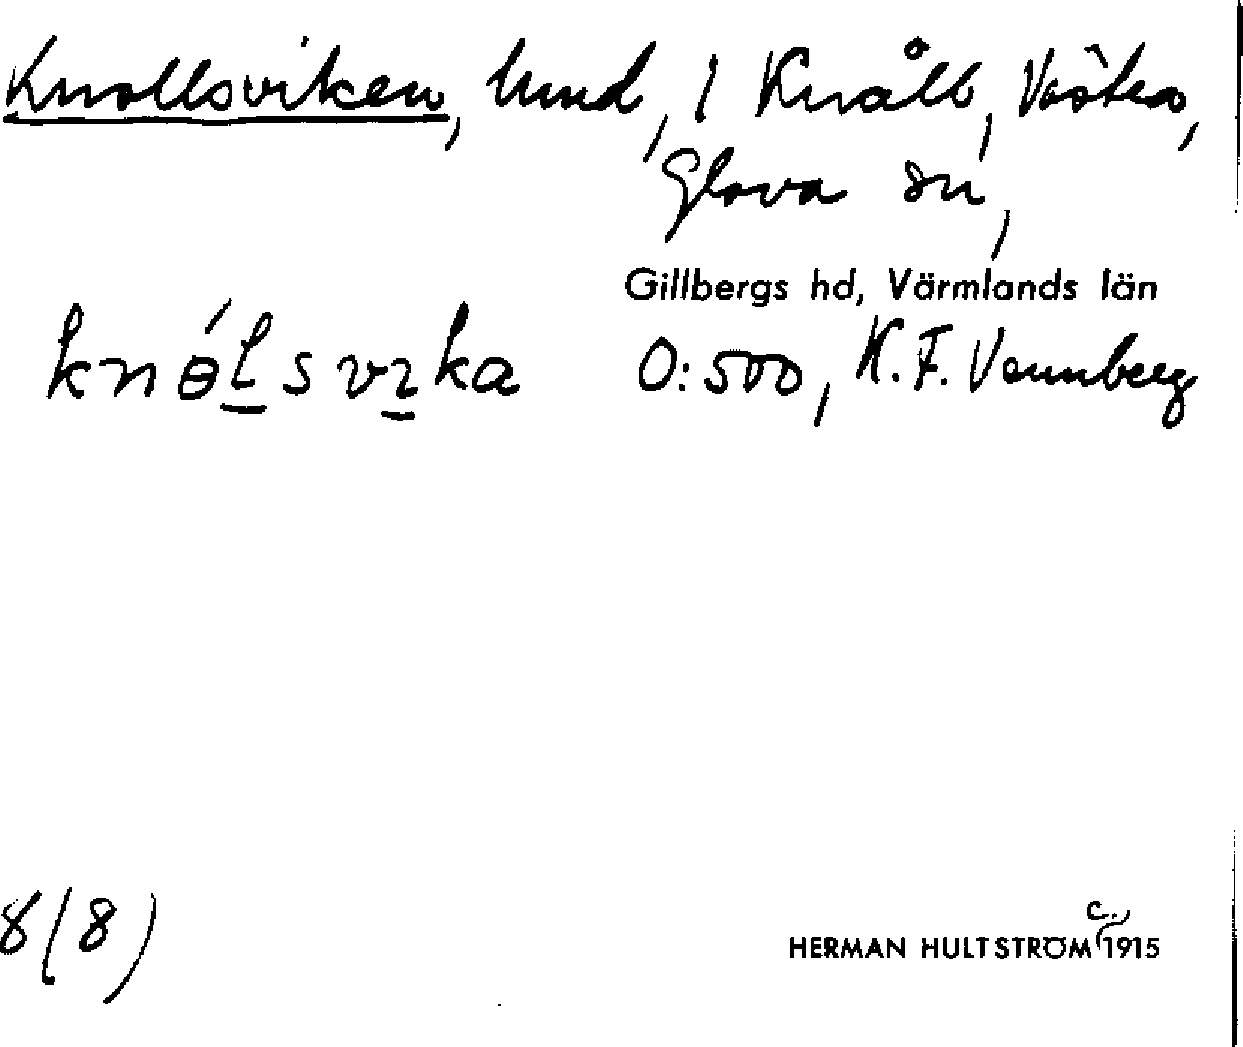 Knollsviken, lund, 1 Knåll, Västra,
Glava sn,
Gillbergs hd, Värmlands län
knɵ́lsvıka 0:500, K.F. Vennberg
8(8)
c.
HERMAN HULTSTRÖM 1915